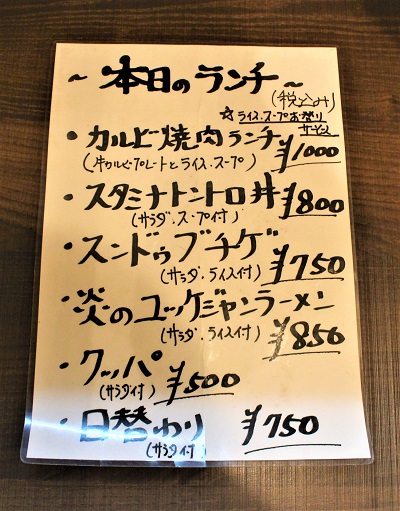 ~本日のランチ~
(税込み)
☆ライス.スープおかわり
サービス
・カルビ焼肉ランチ ¥1000
(牛カルビプレートとライス.スープ)
・スタミナトントロ丼 ¥800
(サラダ.スープ付)
・スンドゥブチゲ
(サラダ.ライス付) ¥750
・炎のユッケジャンラーメン
(サラダ.ライス付) ¥850
・クッパ
(サラダ付) ¥500
・日替わり ¥750
(サラダ付)